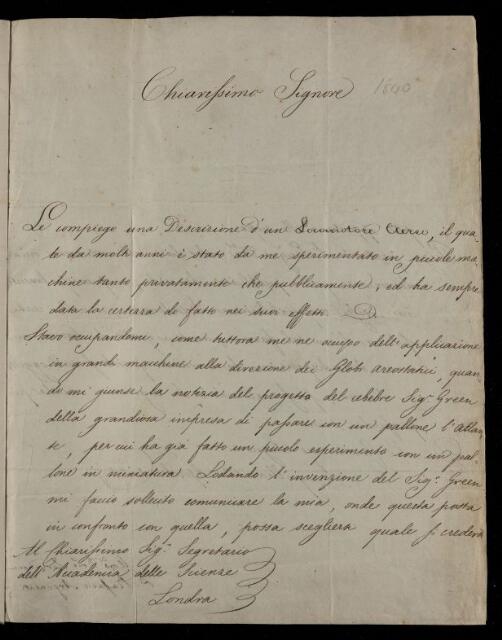 Chiarissimo Signore 1840
Le compiego una Descrizione d'un Aereo, il qua-
le da molti anni è stato da me sperimentato in piccole ma-
chine tanto privatamente che pubblicamente, ed ha sempre
data la certezza di fatto nei suoi effetti.
Stavo occupandomi, come tuttora me ne occupo dell'applicazione
in grandi macchine alla direzione dei Globi areostatici, quan-
do mi giunse la notizia del progetto del celebre Sigr. Green
della grandiosa impresa di passare con un pallone l'Atlan-
te, per cui ha già fatto un piccolo esperimento con un pal-
lone in miniatura. Lodando l'invenzione del Sigr. Green
mi faccio sollecito comunicare la mia, onde questa posta
in confronto con quella, possa scegliersi quale si crederà
Al Chiarissimo Sigr. Segretario
dell'Accademia delle Scienze
Londra